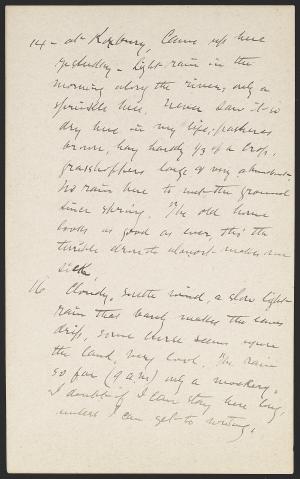 14 - at Roxbury, Came up here
yesterday - Light rain in the
morning along the river, only a
sprinkle here. Never saw it so
dry here in my life; pastures
brown, hay hardly 1/3 of a crop,
grasshoppers large & very abundant
No rain here to wet the ground
since spring. The old home
looks as good as ever, tho' the
terrible drouth almost makes me
sick.
16 Cloudy, south wind, a slow light
rain that barely makes the eaves
drip, some curse seems upon
the land, very cool. The rain
so far (9 a.m) only a mockery.
I doubt if I can stay here long,
unless I can get to writing.